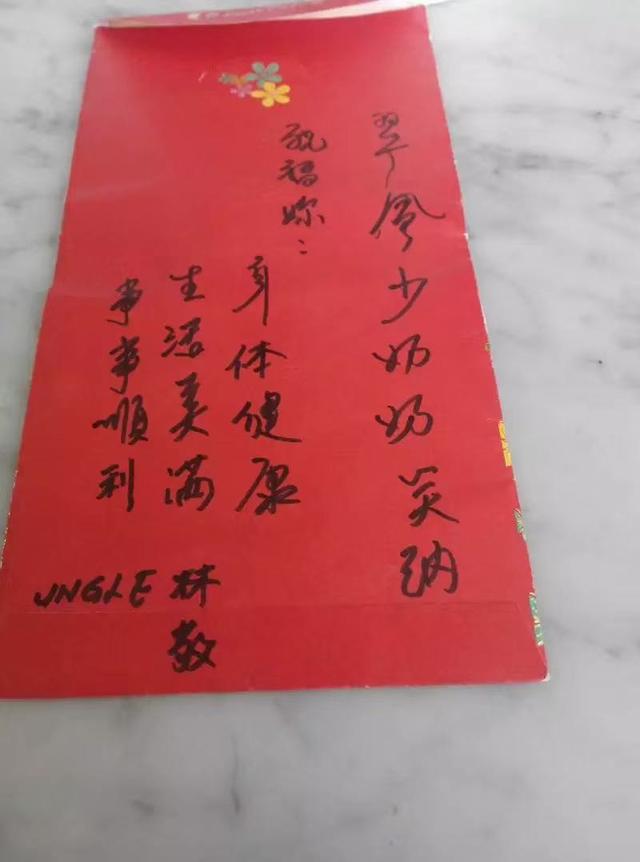 翠凤少奶奶笑纳
祝福妳：
身体健康
生活美满
事事順利
UNGLE 林敬